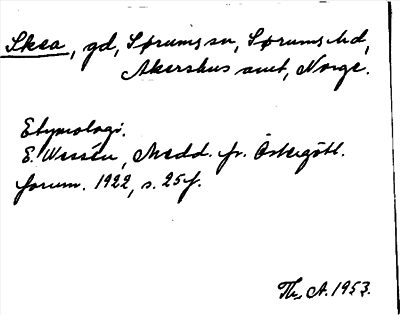 Skea, gd, Sørums sn, Sørums hd,
Akershus amt, Norge.
Etymologi.
E. Wessén, Medd. fr. Östergötl.
fornm. 1922, s. 25 f.
Th. A. 1953.